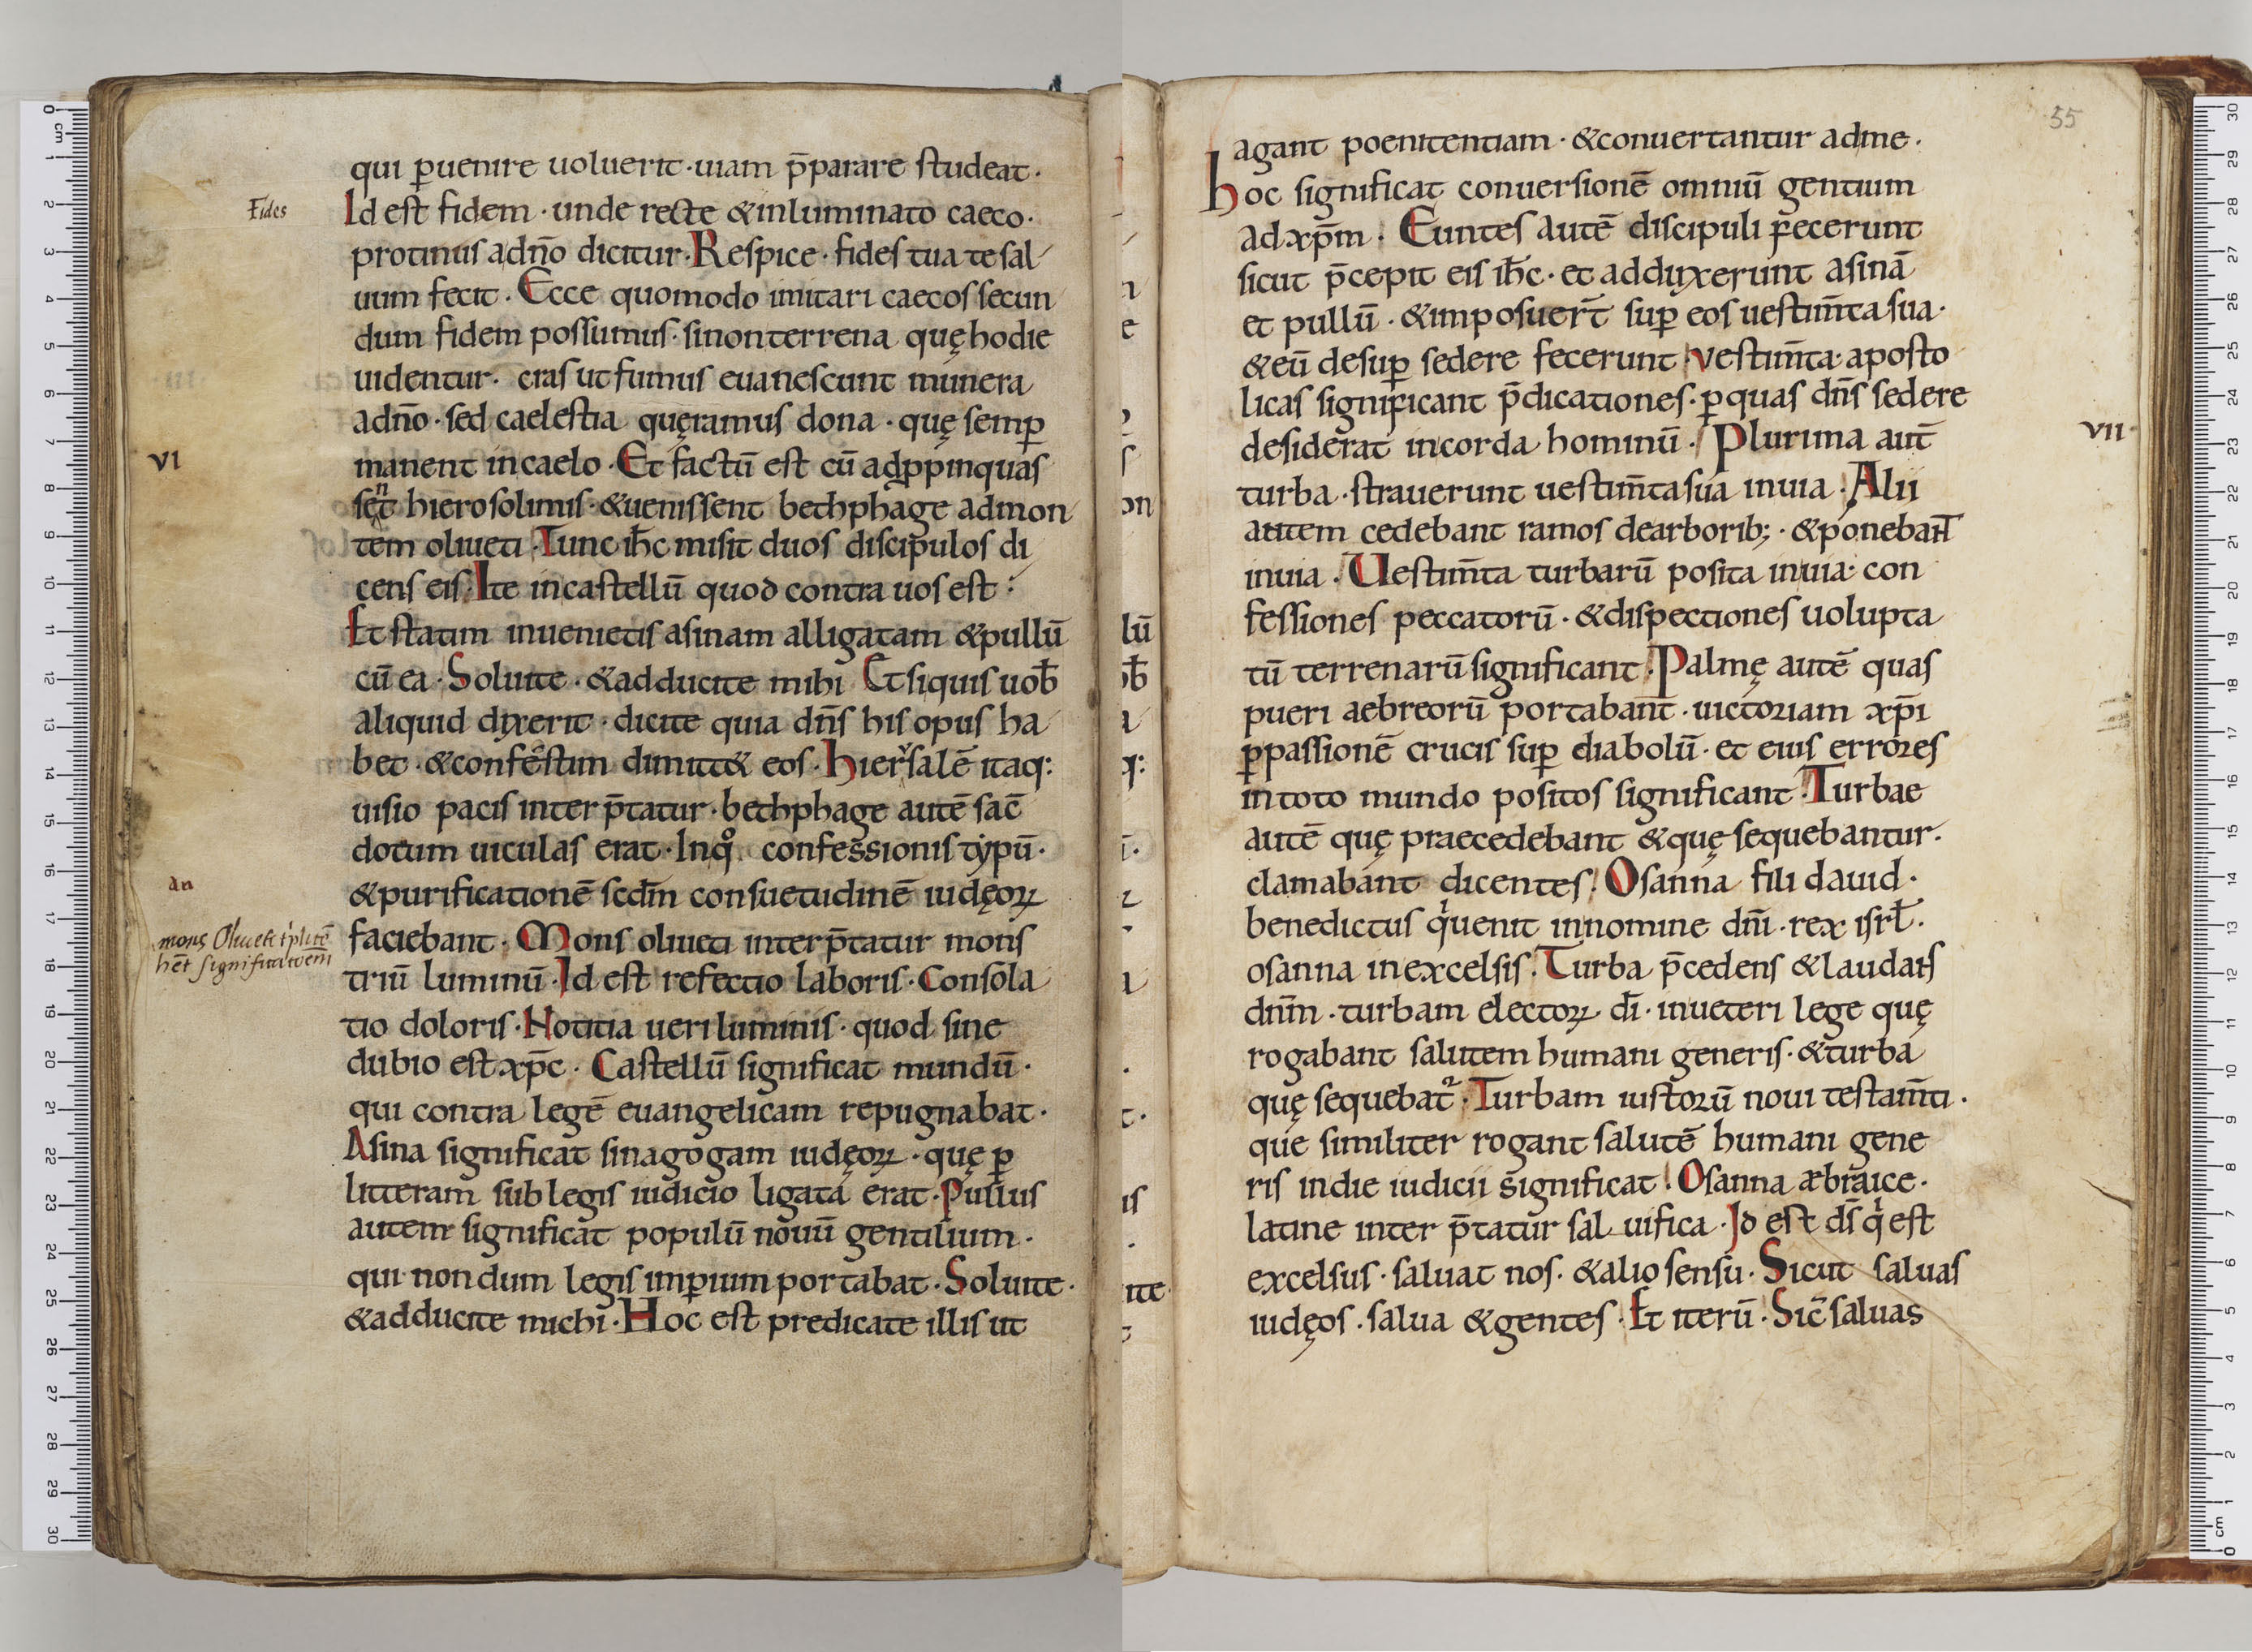 qui p̄uenire uoluerit · uiam p̄parare studeat ·
Fides
Id est fidem · unde recte & inluminato caeco ·
protinus adn̄o dicitur · Respice · fides tua te sal
uum fecit · Ecce quomodo imitari caecos secun
dum fidem possumus · si non terrena quę hodie
uidentur · cras ut fumus euanescunt munera
adn̄o · sed caelestia quęramus dona · quę semp̄
VI
manent in caelo · Et factū est cū adp̄pinquas
sent hierosolimis · & uenissent bethphage ad mon
tem oliueti · Tunc ih̄c misit duos discipulos di
cens eis · Ite in castellū quod contra uos est ·
Et statim inuenietis asinam alligatam & pullū
cū ea · Soluite · & adducite mihi Et si quis uob̄
aliquid dixerit · dicite quia dn̄s his opus ha
bet · & confestim dimitt& eos · hierusalē itaq:
uisio pacis interp̄tatur · bethphage autē sac̄
dotum uiculas erat · Inq̊ confessionis typū ·
an
& purificationē scdm̄ consuetudinē iudęoꝝ
mons Oliueti t'plicē
faciebant · Mons oliueti interp̄tatur mons
hēt significationem
triū luminū · Id est refectio laboris · Consola
tio doloris · Notitia ueri luminis · quod sine
dubio est xp̄c · Castellū significat mundū ·
qui contra legē euangelicam repugnabat ·
Asina significat sinagogam iudęoꝝ · quę p̄
litteram sub legis iudicio ligata erat · Pullus
autem significat populū nouū gentilium ·
qui nondum legis imp̄ium portabat · Soluite ·
& adducite michi · Hoc est predicate illis ut
55
agant poenitentiam · & conuertantur ad me ·
hoc significat conuersionē omniū gentium
ad xp̄m · Euntes autē discipuli fecerunt
sicut p̄cepit eis ih̄c · et adduxerunt asinā
et pullū · & imposuer̄t sup̄ eos uestim̄ta sua ·
& eū desup̄ sedere fecerunt · vestim̄ta aposto
licas significant p̄dicationes · p̄ quas dn̄s sedere
VII
desiderat in corda hominū · Plurima aut̄
turba · strauerunt uestim̄ta sua in uia · Alii
autem cedebant ramos de arborib; · & ponebant
in uia · Uestim̄ta turbarū posita in uia con
fessiones peccatorū · & dispectiones uolupta
tū terrenarū significant · Palmę autē quas
pueri aebreorū portabant · uictoriam xp̄i
p̄ passionē crucis sup̄ diabolū · et eius errores
in toto mundo positos significant · Turbae
autē quę praecedebant & quę sequebantur ·
clamabant dicentes · Osanna fili dauid ·
benedictus qⁱ uenit in nomine dn̄i · rex isrl̄ ·
osanna in excelsis · Turba p̄cedens & laudans
dn̄m · turbam electoꝝ dī · in ueteri lege quę
rogabant salutem humani generis · & turba
quę sequebat᷑ · Turbam iustorū noui testam̄ti ·
que similiter rogant salutē humani gene
ris in die iudicii significat · Osanna æbraice ·
latine interp̄tatur saluifica · Id est ds̄ qⁱ est
excelsus · saluat nos · & alio sensu · Sicut saluas
iudęos · salua & gentes · Et iterū · Sic̄ saluas